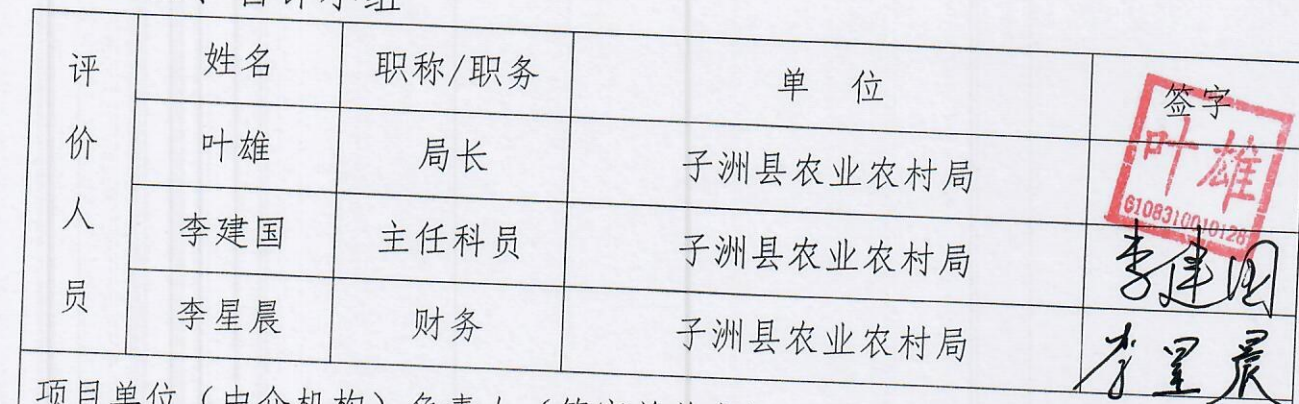 自评小组
评价人员
姓名 职称/职务 单 位 签字
叶雄 局长 子洲县农业农村局 叶雄
6108310010128
李建国 主任科员 子洲县农业农村局 李建国
李星晨 财务 子洲县农业农村局 李星晨
项目单位（中介机构）负责人（签字并盖